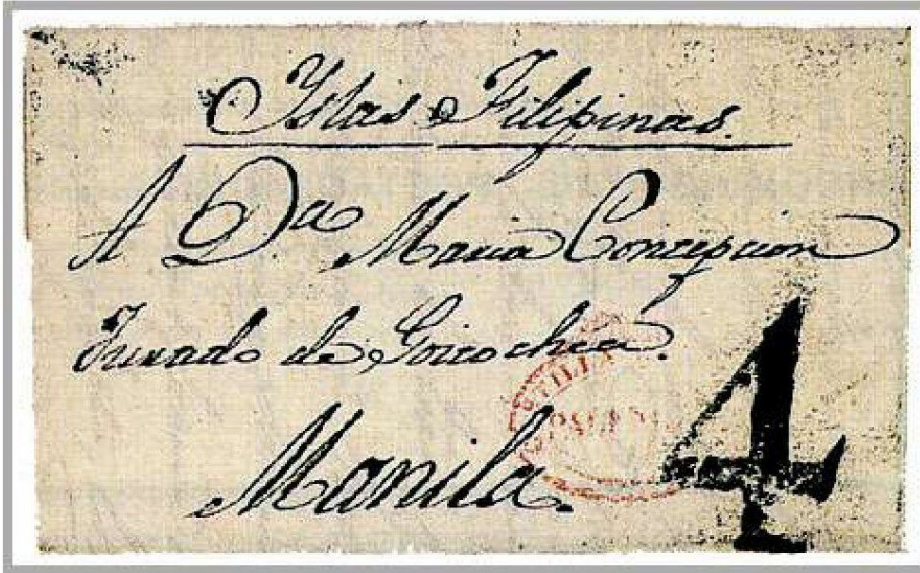 Yslas Filipinas.
A Da Maria Concepcion
Jurado de Goicochea.
Manila.
4